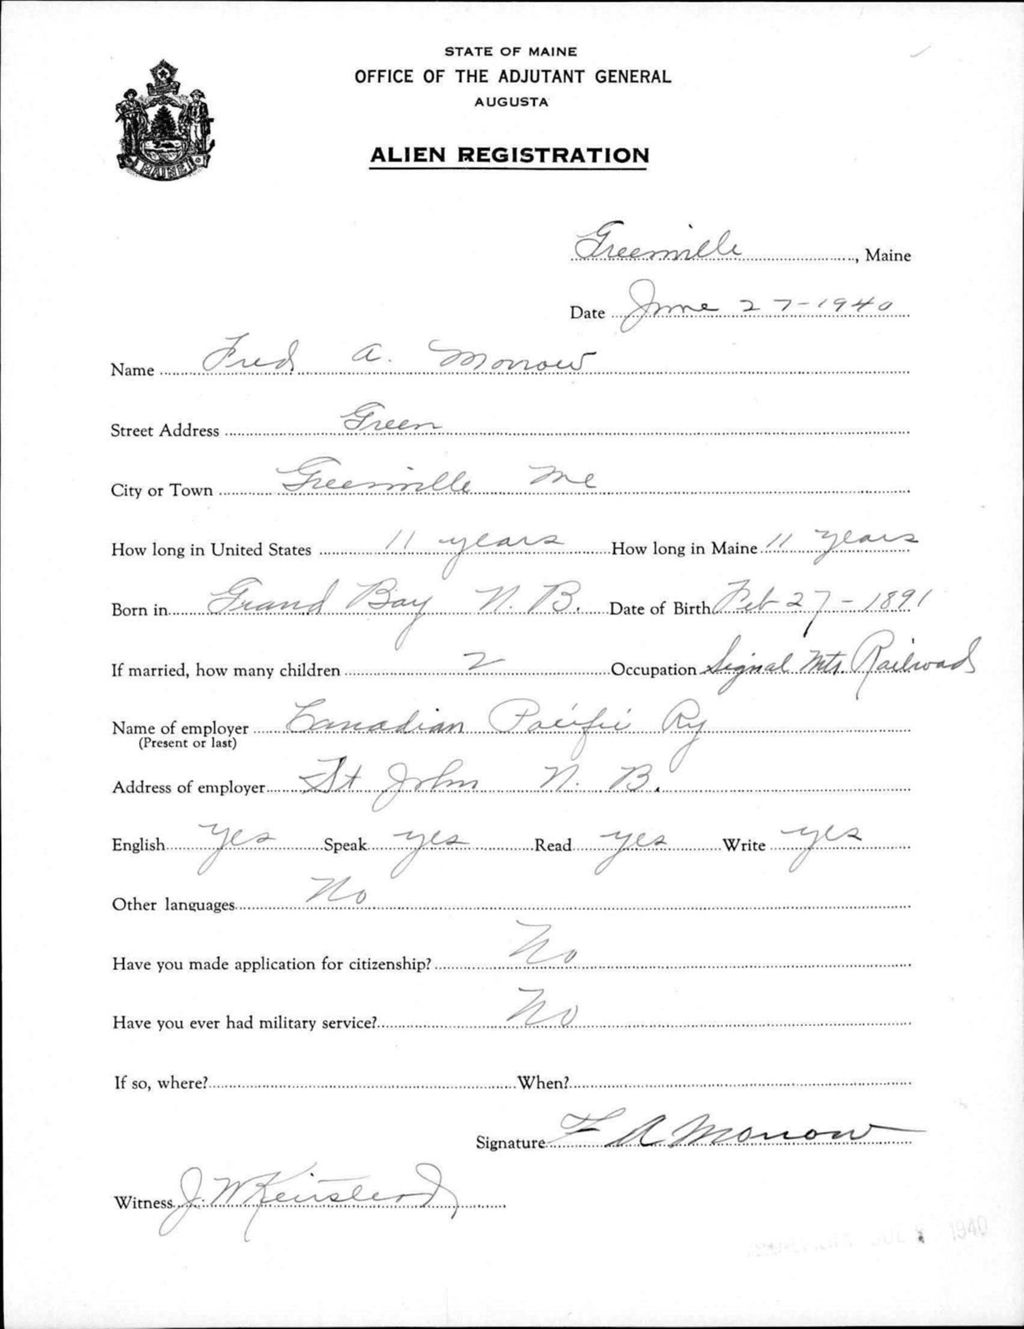 STATE OF MAINE
OFFICE OF THE ADJUTANT GENERAL
AUGUSTA
ALIEN REGISTRATION
MAINE
Greenville, Maine
Date June 27-1940
Name Fred A. Morrow
Street Address Green
City or Town Greenville Me
How long in United States 11 years How long in Maine 11 years
Born in Grand Bay N. B. Date of Birth Feb 27-1891
If married, how many children 2 Occupation Signal Mtr. Railroad
Name of employer Canadian Pacific Ry
(Present or last)
Address of employer St John N. B.
English yes Speak yes Read yes Write yes
Other languages No
Have you made application for citizenship? No
Have you ever had military service? No
If so, where? When?
Signature F A Morrow
Witness J. W
1940